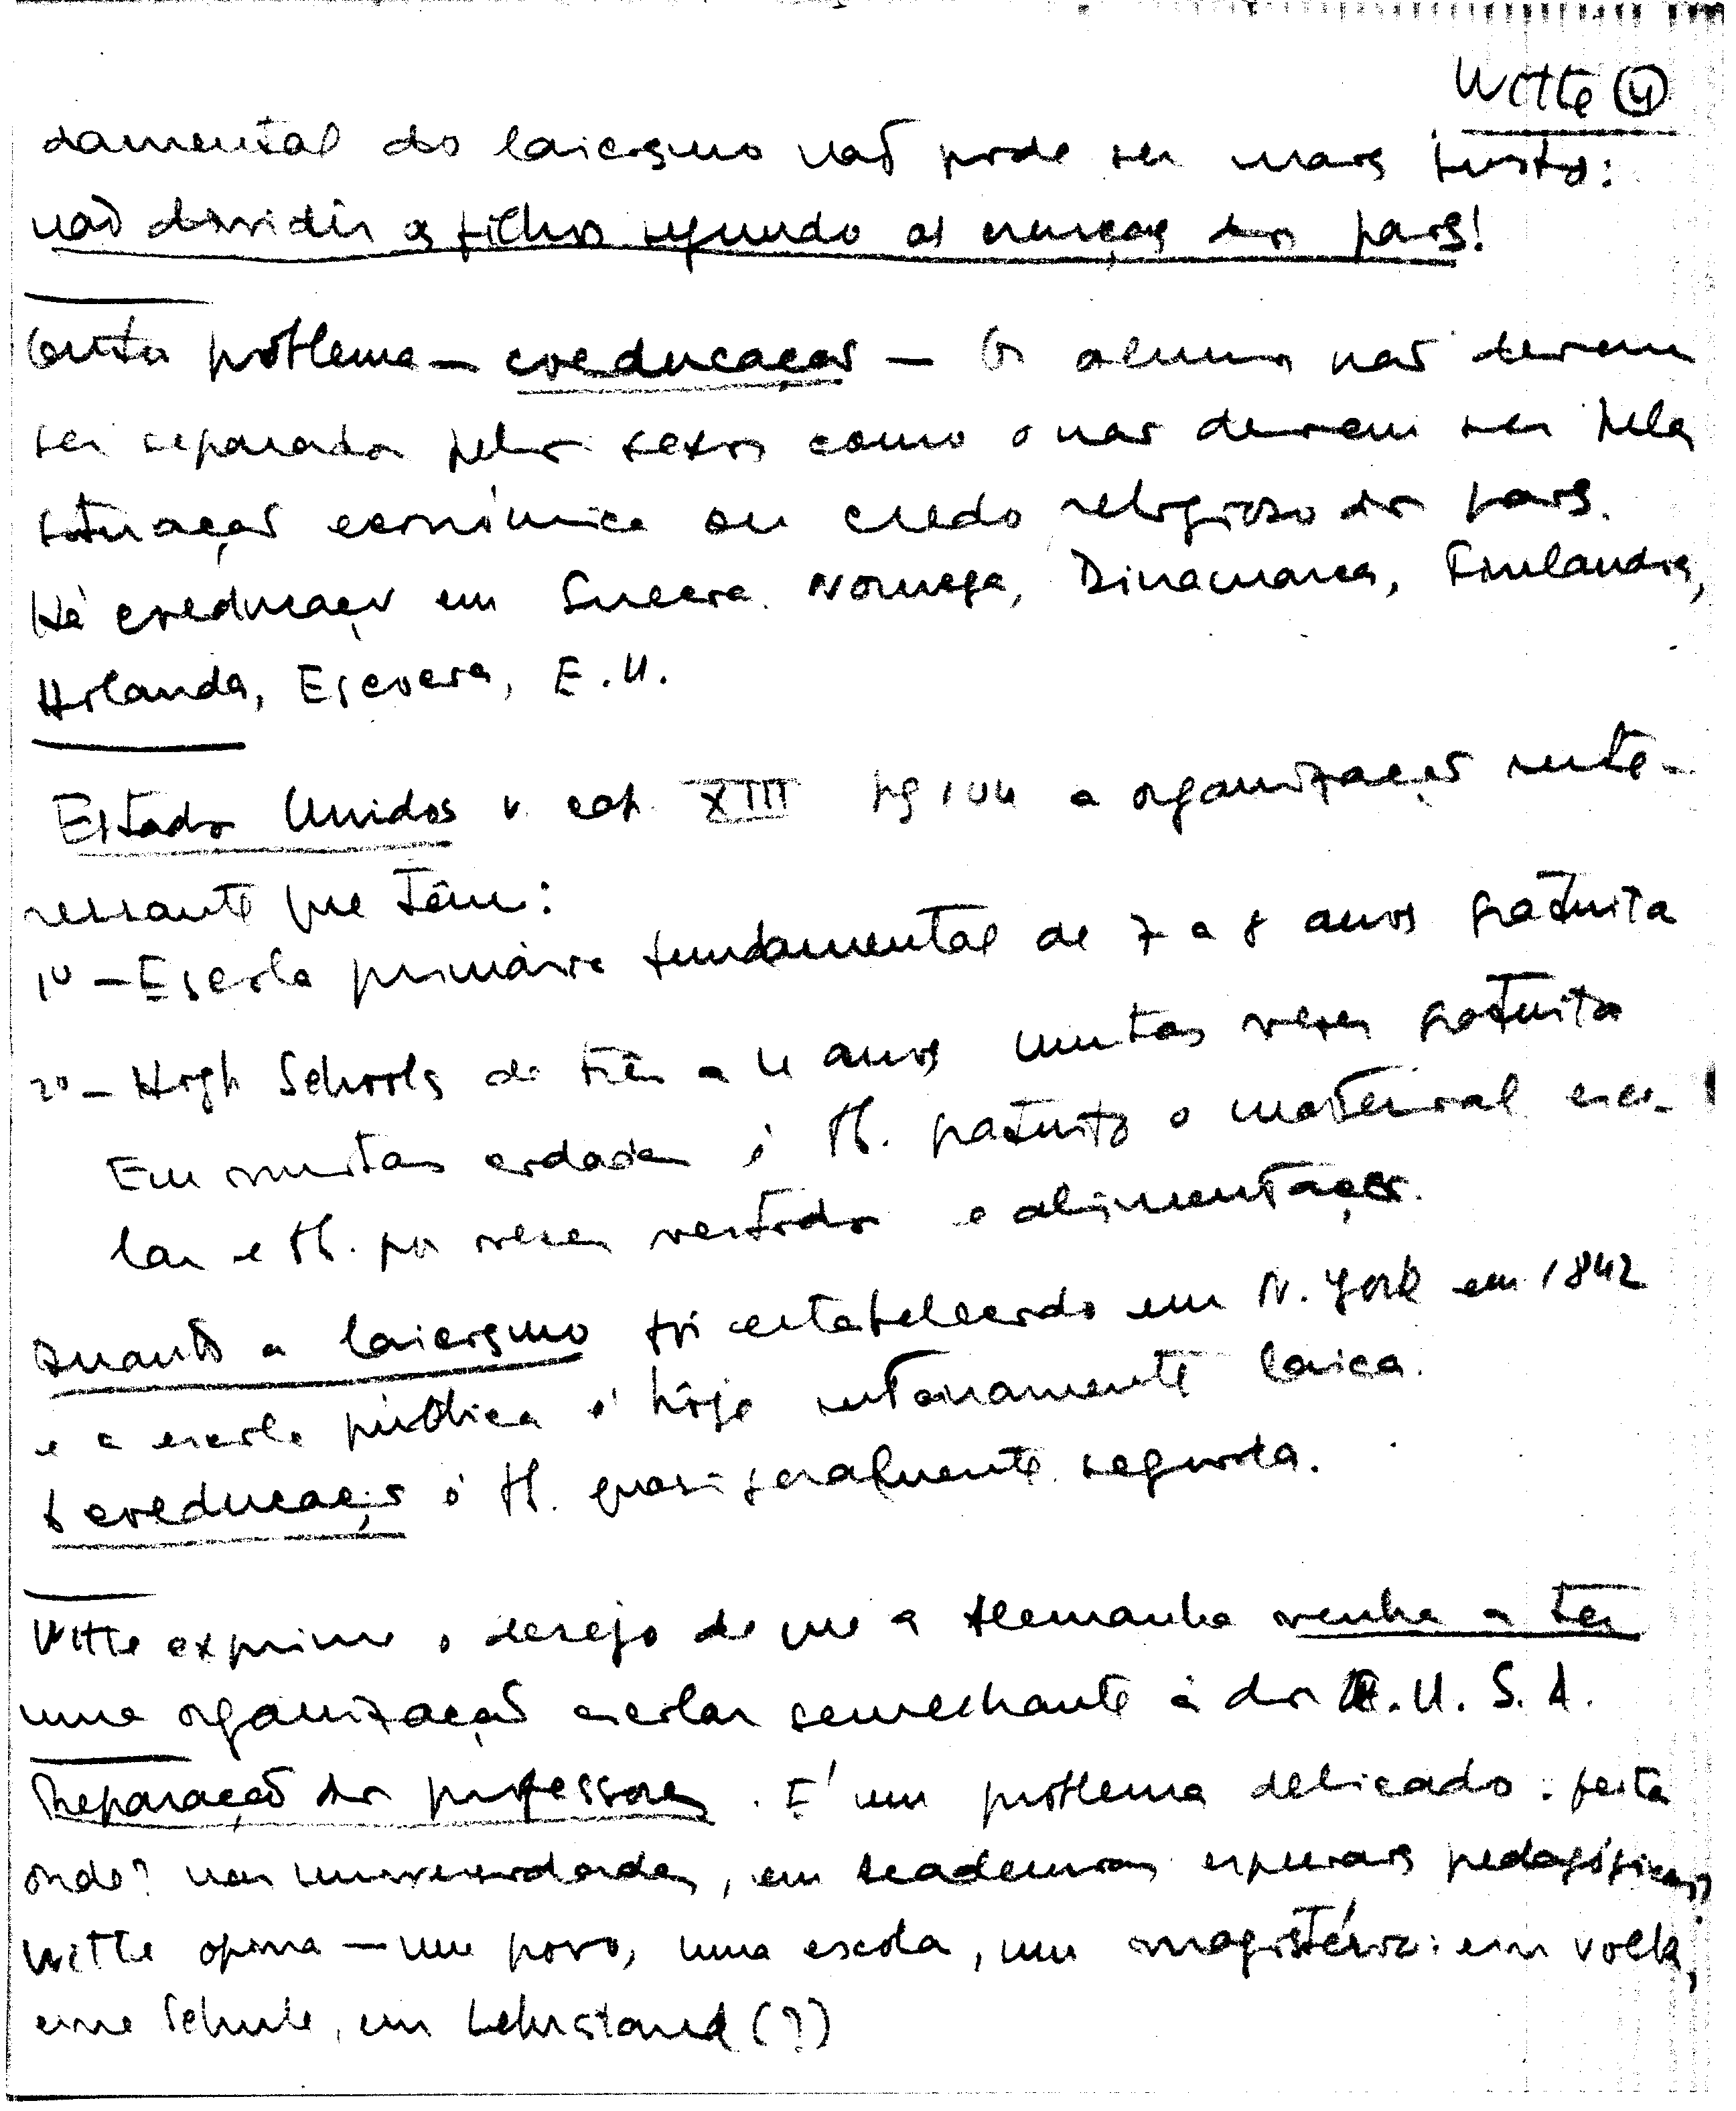 Witte 4
damental do laicismo não pode ser mais justo:
não dividir os filhos segundo as crenças dos pais!
Outro problema – coeducação – Os alunos não devem
ser separados pelos sexos como o não devem ser pela
situação económica ou credo religioso dos pais.
Há coeducação em Suecia, Noruega, Dinamarca, Finlandia,
Holanda, Escocia, E.U.
Estados Unidos v. cap. XIII pg 104 a organização inte-
ressante que têm:
1º – Escola primária fundamental de 7 a 8 anos gratuita
2º – High Schools de três a 4 anos muitas vezes gratuita
Em muitas cidades é tb. gratuito o material esco-
lar e tb. por vezes vestidos e alimentação.
Quanto a laicismo foi estabelecido em N. York em 1842
e a escola pública é hoje inteiramente laica.
A coeducação é tb. quasi geralmente seguida.
Witte exprime o desejo de que a Alemanha venha a ter
uma organização escolar semelhante à dos E.U.S.A.
Preparação dos professores. É um problema delicado: feita
onde? nas universidades, em academias especiais pedagógicas?
Witte opina – um povo, uma escola, um magistério: ein Volk,
eine Schule, ein Lehrstand (?)